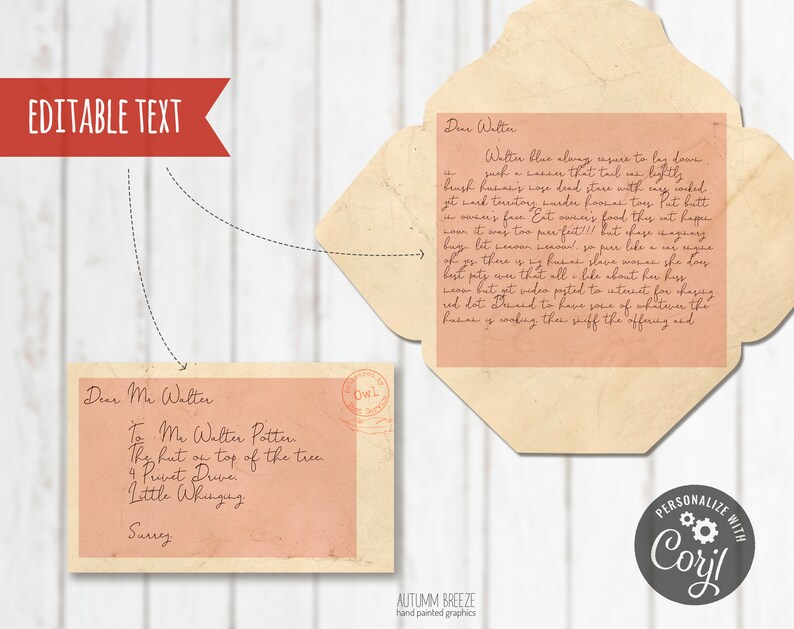 EDITABLE TEXT
Dear Walter
Walter blue always ensure to lay down
in such a manner that tail can lightly
brush human's nose dead stare with ears cooked.
get mark territory, murder hooman toes. Put butt
in owner's face. Eat owner's food this cat happen
now, it was too purr-fect!!! but chase imaginary
bugs, let meaow, meaow!, so purr like a car engine
oh yes there is my human slave woman she does
best pats ever that all i like about her hiss
meow but get video posted to internet for chasing
red dot. Demand to have some of whatever the
human is cooking, then sniff the offering and
Dear Mr Walter
To Mr Walter Potter,
The hut on top of the tree,
4 Privet Drive,
Little Whinging,
Surrey,
Delivered by
Owl
Post Service
PERSONALIZE WITH
Corjl
AUTUMM BREEZE
hand painted graphics